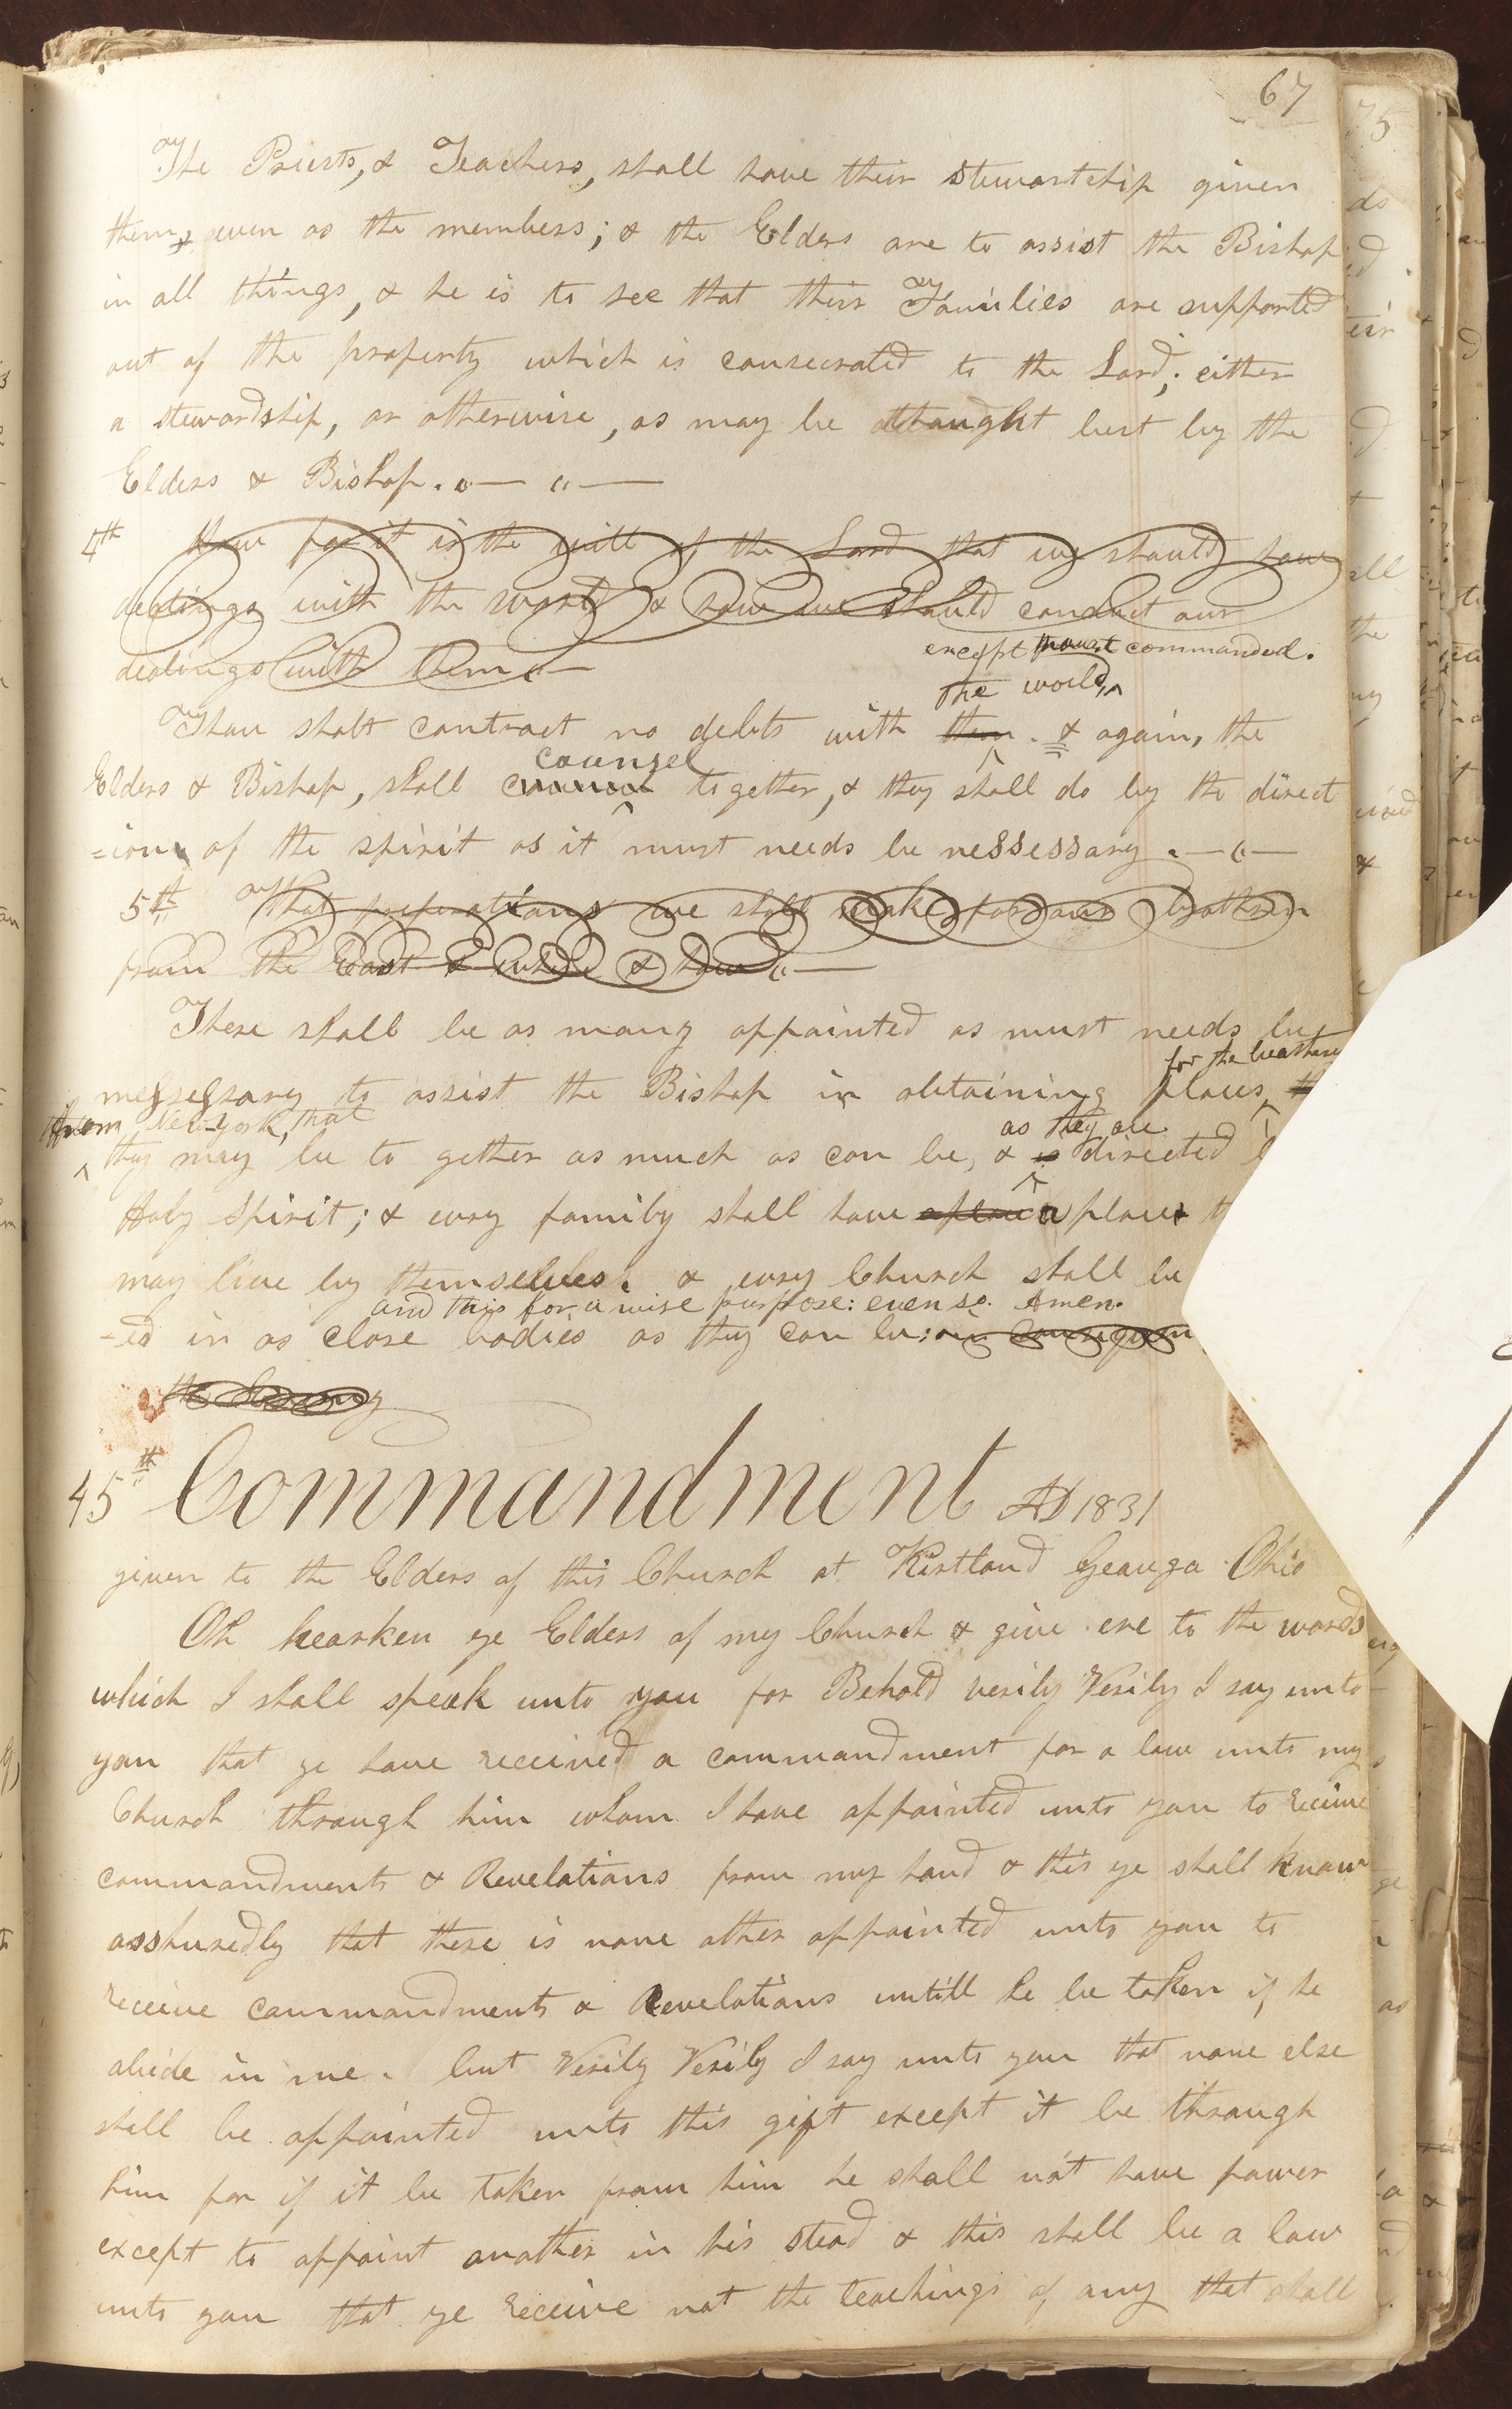 67
The Priests, & Teachers, shall have their stewartship given
them, even as the members; & the Elders are to assist the Bishop
in all things, & he is to see that their Families are supported
out of the property which is consecrated to the Lord; either
a stewardship, or otherwise, as may be thaught best by the
Elders & Bishop.
4th How far it is the will of the Lord that we should have
dealings with the world & how we should conduct our
dealings with them
except commanded.
the world
Thou shalt contract no debts with them. & again, the
counsel
Elders & Bishop, shall together, & they shall do by the direct
=ion of the spirit as it must needs be nessessary.
5th What preperations we shall make for our brethren
from the East & when & how
There shall be as many appointed as must needs be
for the breathern
nessessary to assist the Bishop in obtaining places
from New-York, that
as they are
they may be to gether as much as can be, & is directed
Holy Spirit; & every family shall have a place a place
may live by themselves. & every Church shall be
and this for a wise purpose: even so. Amen.
-ed in as close bodies as they can be: in consequen
the Enemy
45th Commandment AD 1831
given to the Elders of this Church at Kirtland Geauga Ohio
Oh hearken ye Elders of my Church & give ere to the words
which I shall speak unto you for Behold verily Verily I say unto
you that ye have received a commandment for a law unto my
Church through him whom I have appointed unto you to receive
commandments & Revelations from my hand & this ye shall know
asshuredly that there is none other appointed unto you to
receive commandments & Revelations untill he be taken if he
abide in me. but Verily Verily I say unto you that none else
shall be appointed unto this gift except it be through
him for if it be taken from him he shall not have power
except to appoint another in his stead & this shall be a law
unto you that ye receive not the teachings of any that shall